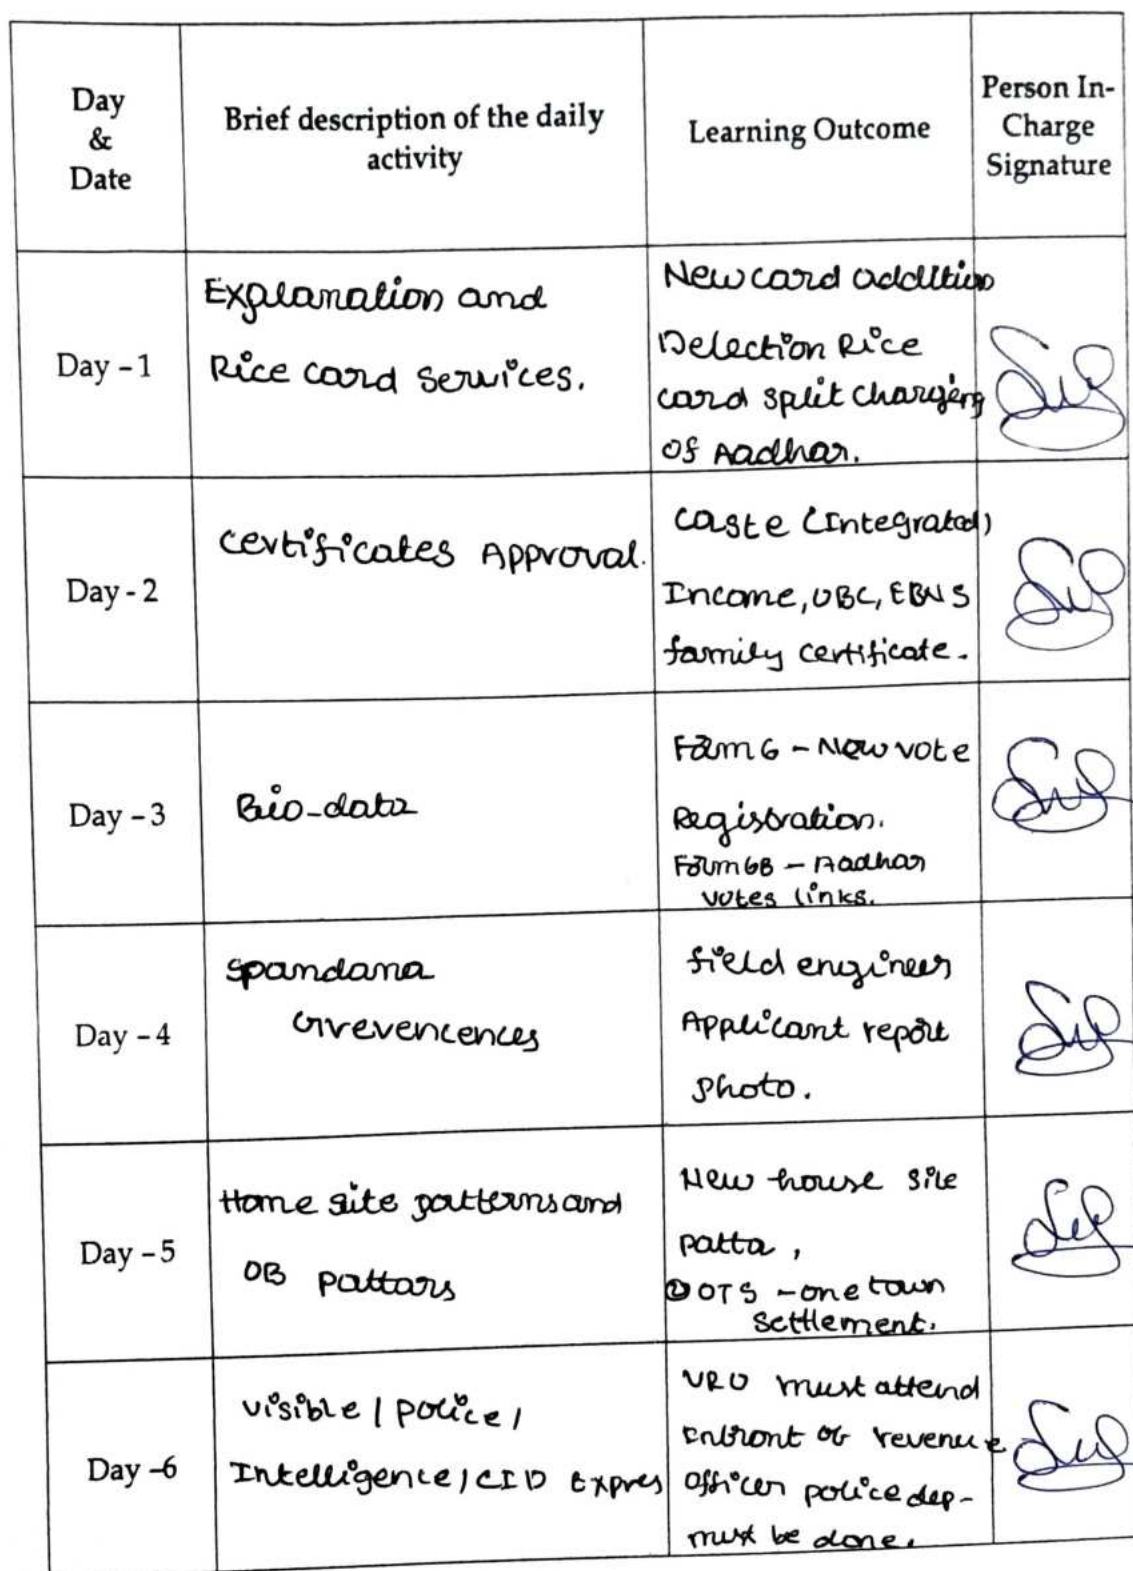 Day
&
Date
Brief description of the daily
activity
Learning Outcome
Person In-
Charge
Signature
Day - 1
Explanation and
Rice card Services.
New card addition
Delection Rice
card split Charging
Of Aadhar.
Day - 2
Certificates Approval.
Caste (Integrated)
Income, OBC, EBNS
family certificate.
Day - 3
Bio-data
Form 6 - New vote
Registration.
Form 6B - Aadhar
votes links.
Day - 4
Spandana
Grevencences
field engineer
Applicant report
photo.
Day - 5
Home site patterns and
OB pattars
New house site
patta,
② OTS - one town
Settlement.
Day -6
visible / police /
Intelligence / CID Expres
VRO must attend
infront of revenue
officer police dep-
must be done.